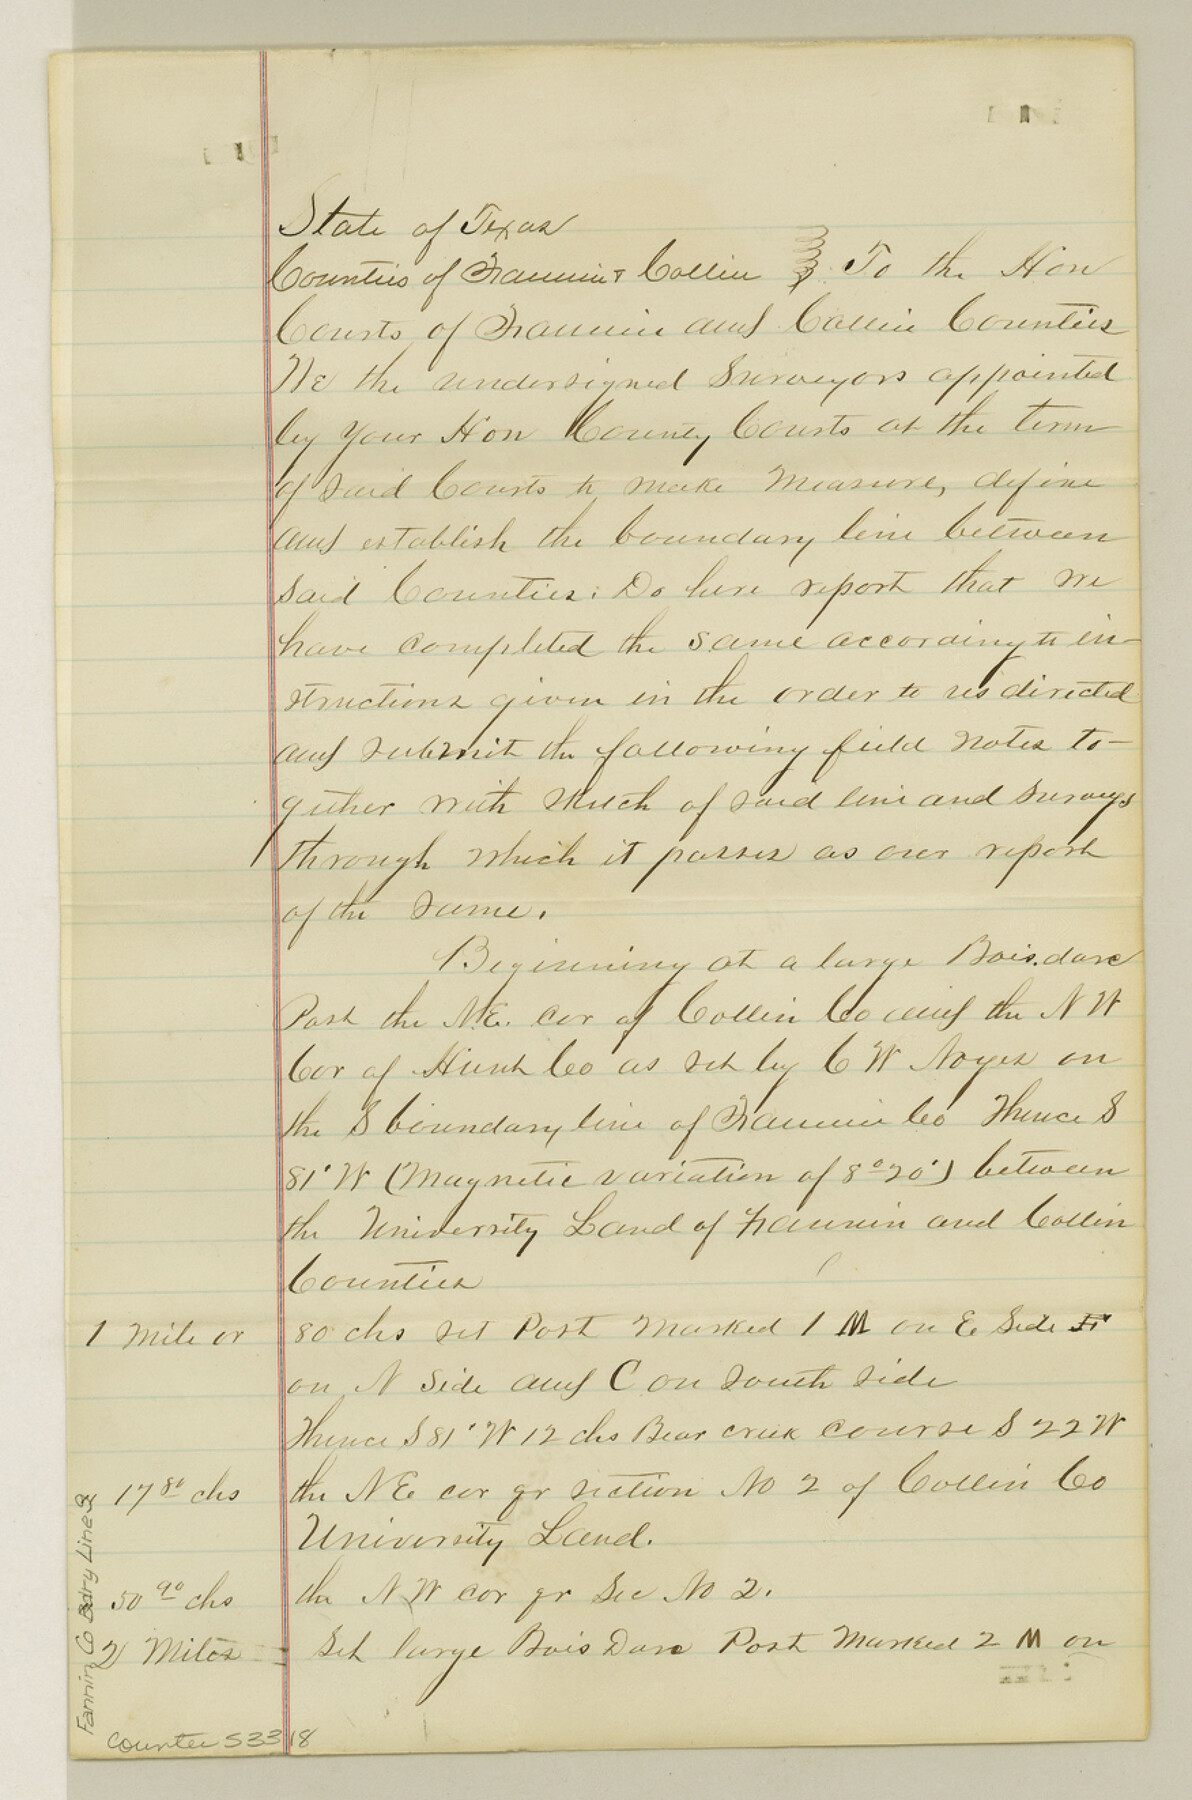 State of Texas
Counties of Fannin & Collin } To the Hon
Courts of Fannin and Collin Counties
We the undersigned Surveyors appointed
by your Hon County Courts at the term
of said Courts to make Measure, define
and establish the boundary line between
said Counties: Do here report that we
have completed the same according to in-
structions given in the order to us directed
and submit the following field notes to-
gether with sketch of said line and surveys
through which it passes as our report
of the same.
Beginning at a large Bois.darc
Post the N.E. cor of Collin Co and the N W
Cor of Hunt Co as set by C W Noyes on
the S boundary line of Fannin Co Thence S
81° W (Magnetic variation of 8° 20') between
the University Land of Fannin and Collin
Counties
1 Mile or 80 chs set Post Marked 1 M on E. Side F
on N Side and C on South side
Thence S 81° W 12 chs Bear creek course S 22 W
17 80 chs the N E. cor qr section No 2 of Collin Co
University Land.
50 90 chs the N W cor qr Sec No 2.
2 Miles = Set large Bois Darc Post Marked 2 M on
Fannin Co Bdry Line 8
counter 53318